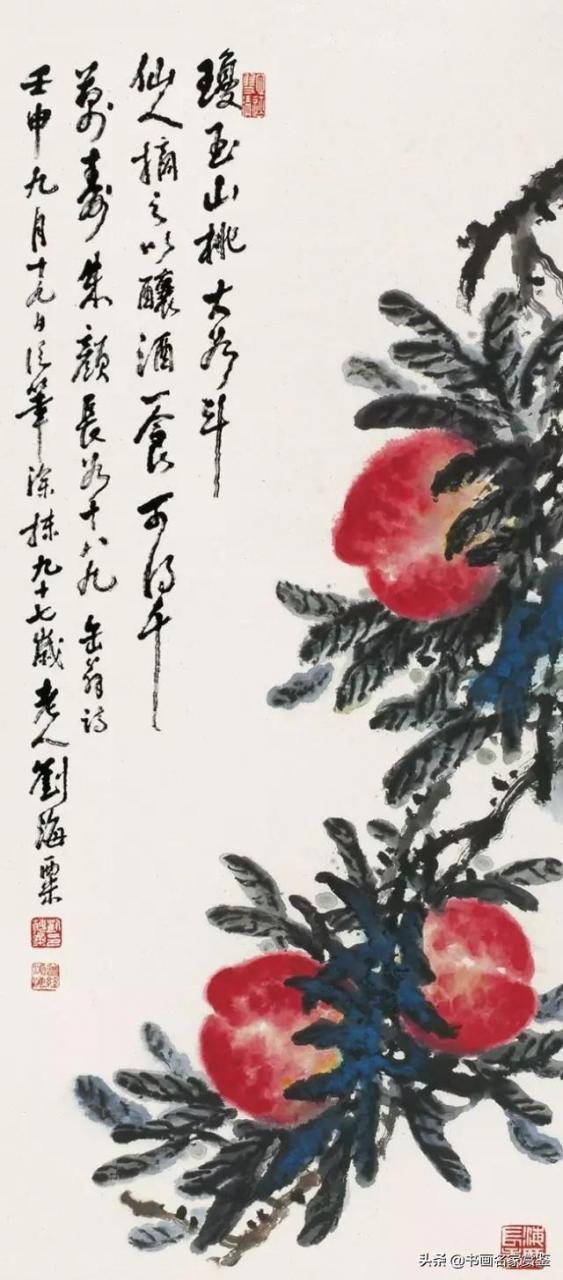 瓊玉山桃大如斗
仙人摘之以釀酒一食可得千
萬壽朱顏長如十八九 缶翁詩
壬申九月十九日信筆涂抹九十七歲老人劉海粟
头条 @书画名家赏鉴